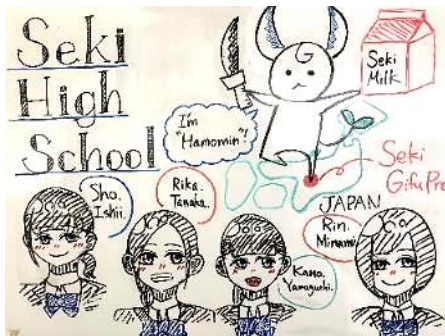 Seki
High
School
Seki
Milk
I'm
"Hamomin"!
Seki
Gifu Pre
JAPAN
Sho.
Ishii.
Rika.
Tanaka.
Kana.
Yamaguchi.
Rin.
Minami.